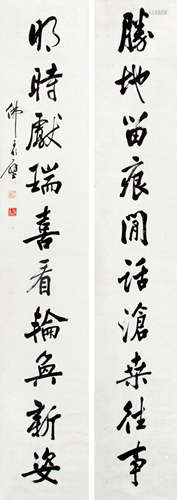 勝地留痕閒話滄桑往事
明時獻瑞喜看輪奐新姿
佛